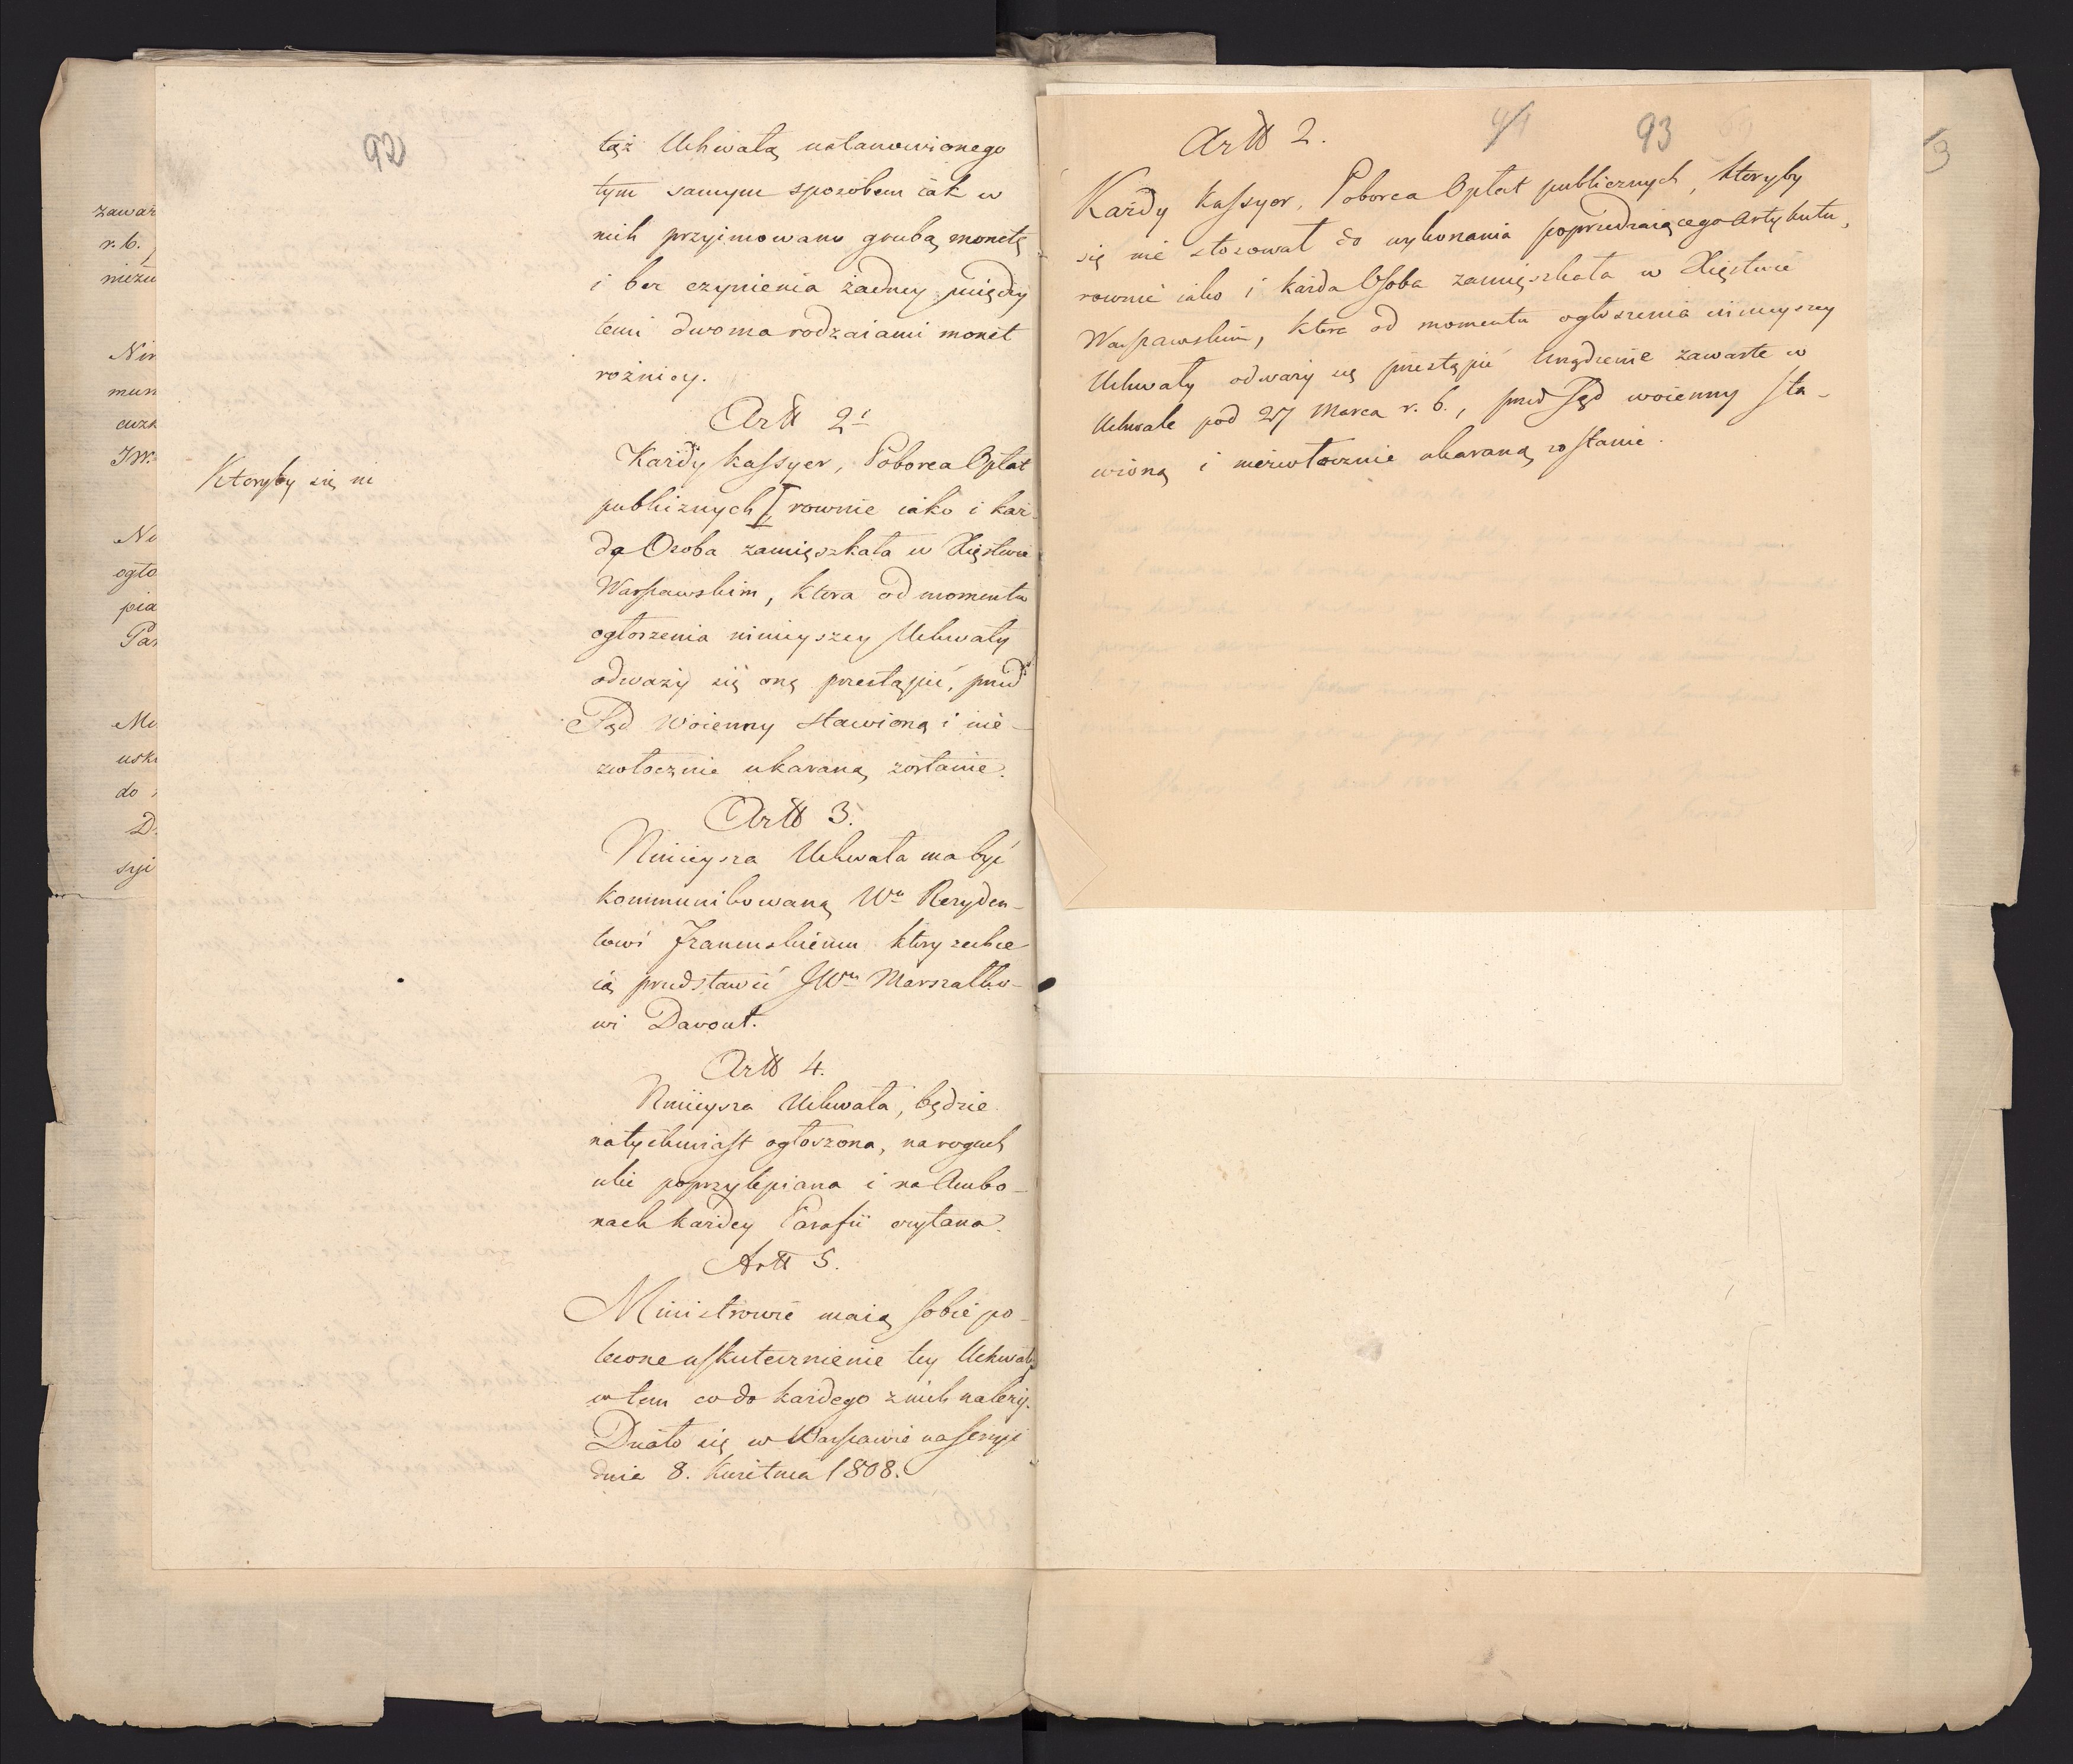 zawar
r. b.
niezu
Nin
mun
cuzk
JW.
No
ogło
pia
Par
Mi
usku
do
D.
syi
92
Ktoryby się ni
tąż Uchwałą ustanowionego
tym samym sposobem iak w
nich przyimowano grubą monetę
i bez czynienia żadney między
temi dwoma rodzaiami monet
rożnicy.
Artt 2i
Każdy kassyer, Poborca Opłat
publicznych I, rownie iako i każ-
da Osoba zamięszkała w Xięstwie
Warszawskim, ktora od momentu
ogłoszenia ninieyszey Uchwały
odważy się onę przestąpić, przed
Sąd Woienny stawioną i nie-
zwłocznie ukaraną zostanie.
Artt 3.
Ninieysza Uchwała ma być
kommunikowaną Wu Rezyden-
towi Francuskiemu ktory zechce
ią przedstawić JWu Marszałko-
wi Davout.
Artt 4.
Ninieysza Uchwała, będzie
natychmiast ogłoszona, na rogach
ulic poprzylepiana i na Ambo-
nach każdey Parafii czytana.
Artt 5.
Ministrowie maią sobie po-
lecone uskutecznienie tey Uchwały
w tem co do każdego z nich należy.
Działo się w Warszawie na sessyi
dnia 8. Kwietnia 1808.
91
93
Artt 2.
Każdy Kassyer, Poborca Opłat publicznych, ktoryby
się nie stosował do wykonania poprzedzaiącego Artykułu,
rownie iako i każda Osoba zamięszkała w Xięstwie
Warszawskim, ktora od momentu ogłoszenia ninieyszey
Uchwały odważy się przestąpić Urządzenie zawarte w
Uchwale pod 27 Marca r. b., przed Sąd woienny sta-
wioną i niezwłocznie ukaraną zostanie.